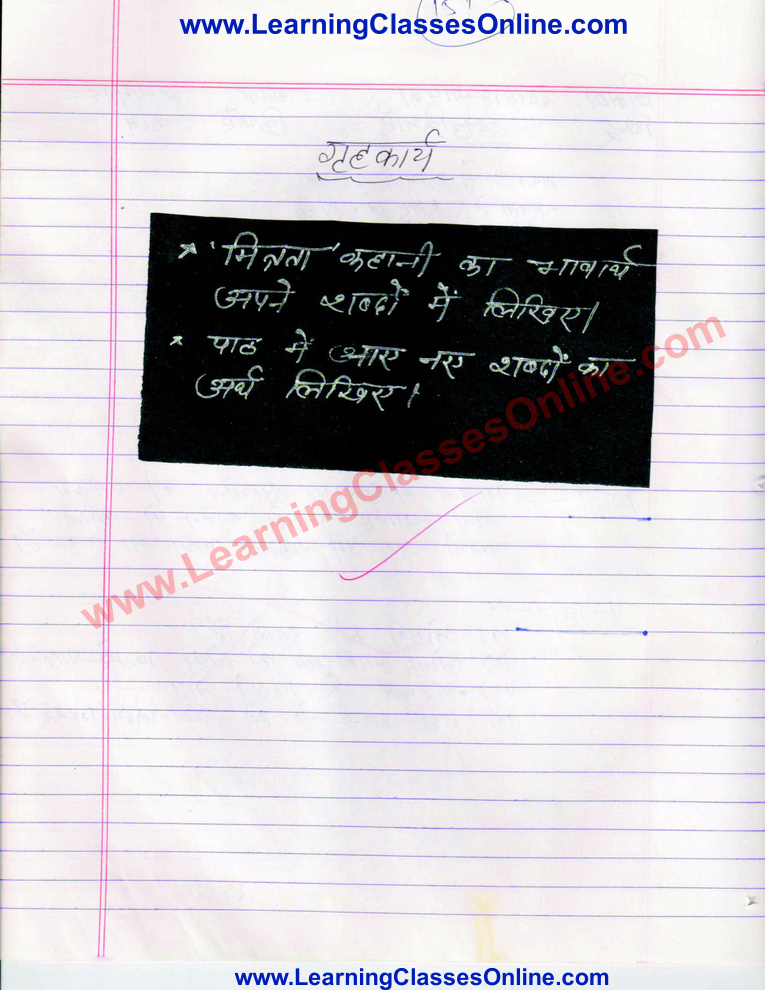 www.LearningClassesOnline.com
गृहकार्य
* 'मित्रता' कहानी का भावार्थ
अपने शब्दों में लिखिए।
* पाठ में आए नए शब्दों का
अर्थ लिखिए।
www.LearningClassesOnline.com
www.LearningClassesOnline.com